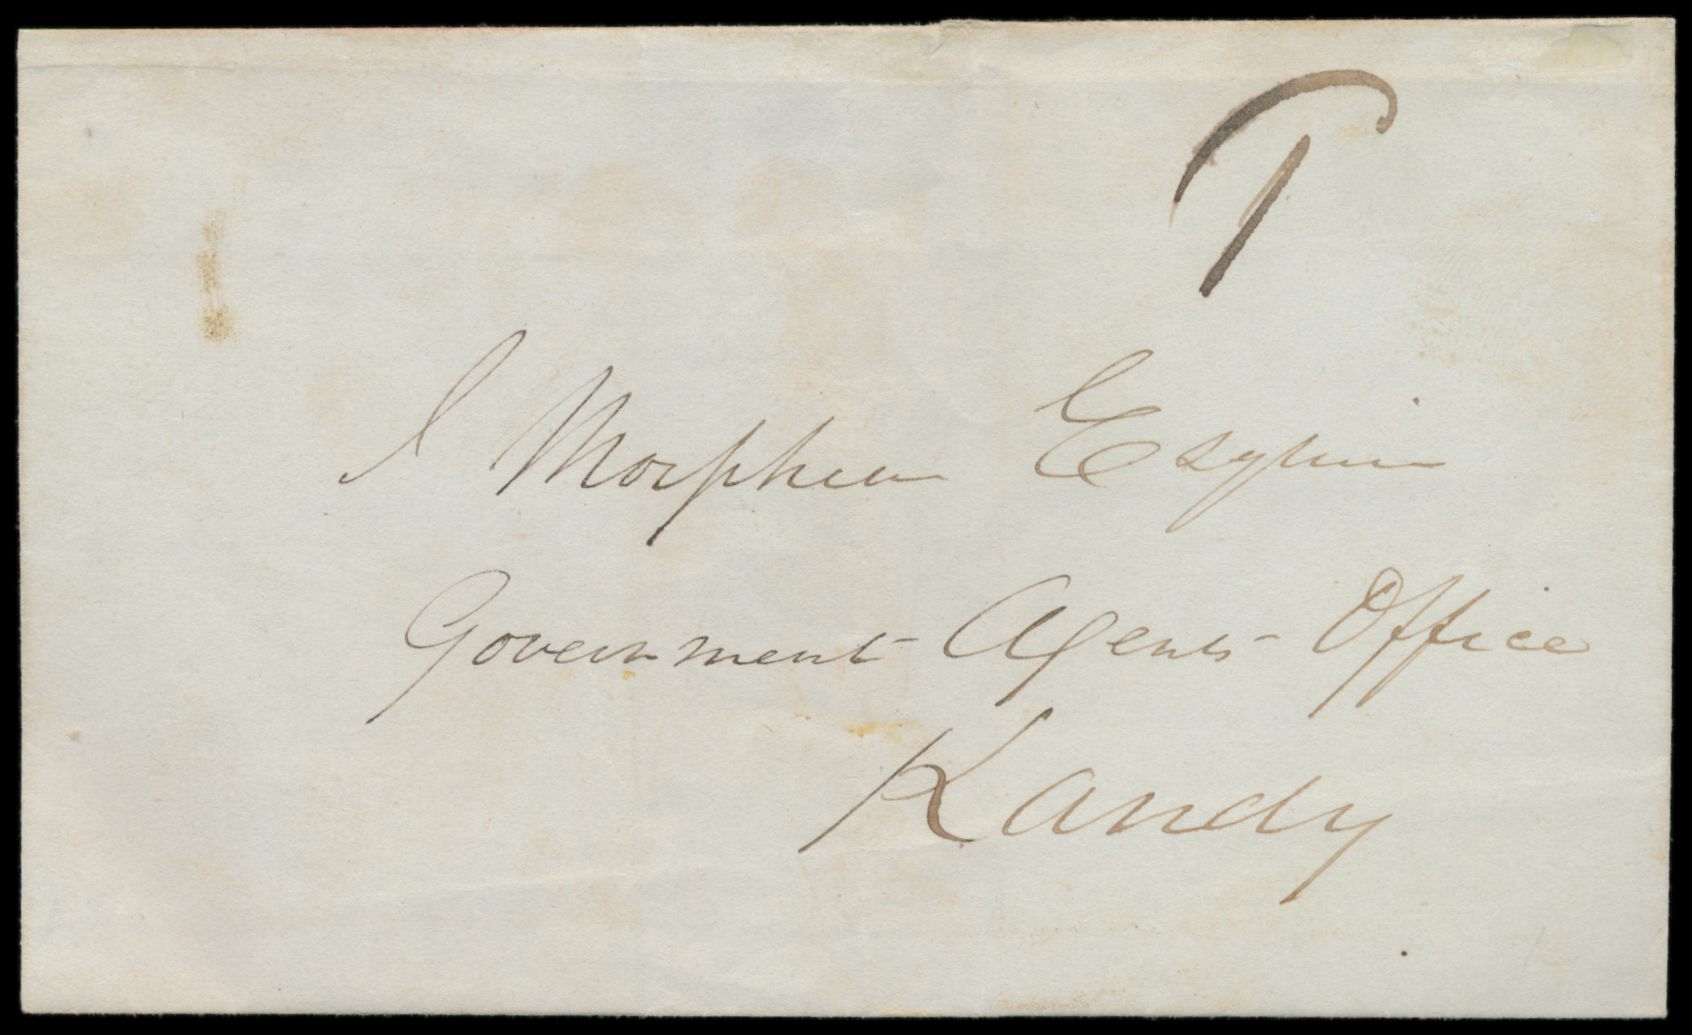 1
J Morphew Esquire
Government Agents Office
Kandy